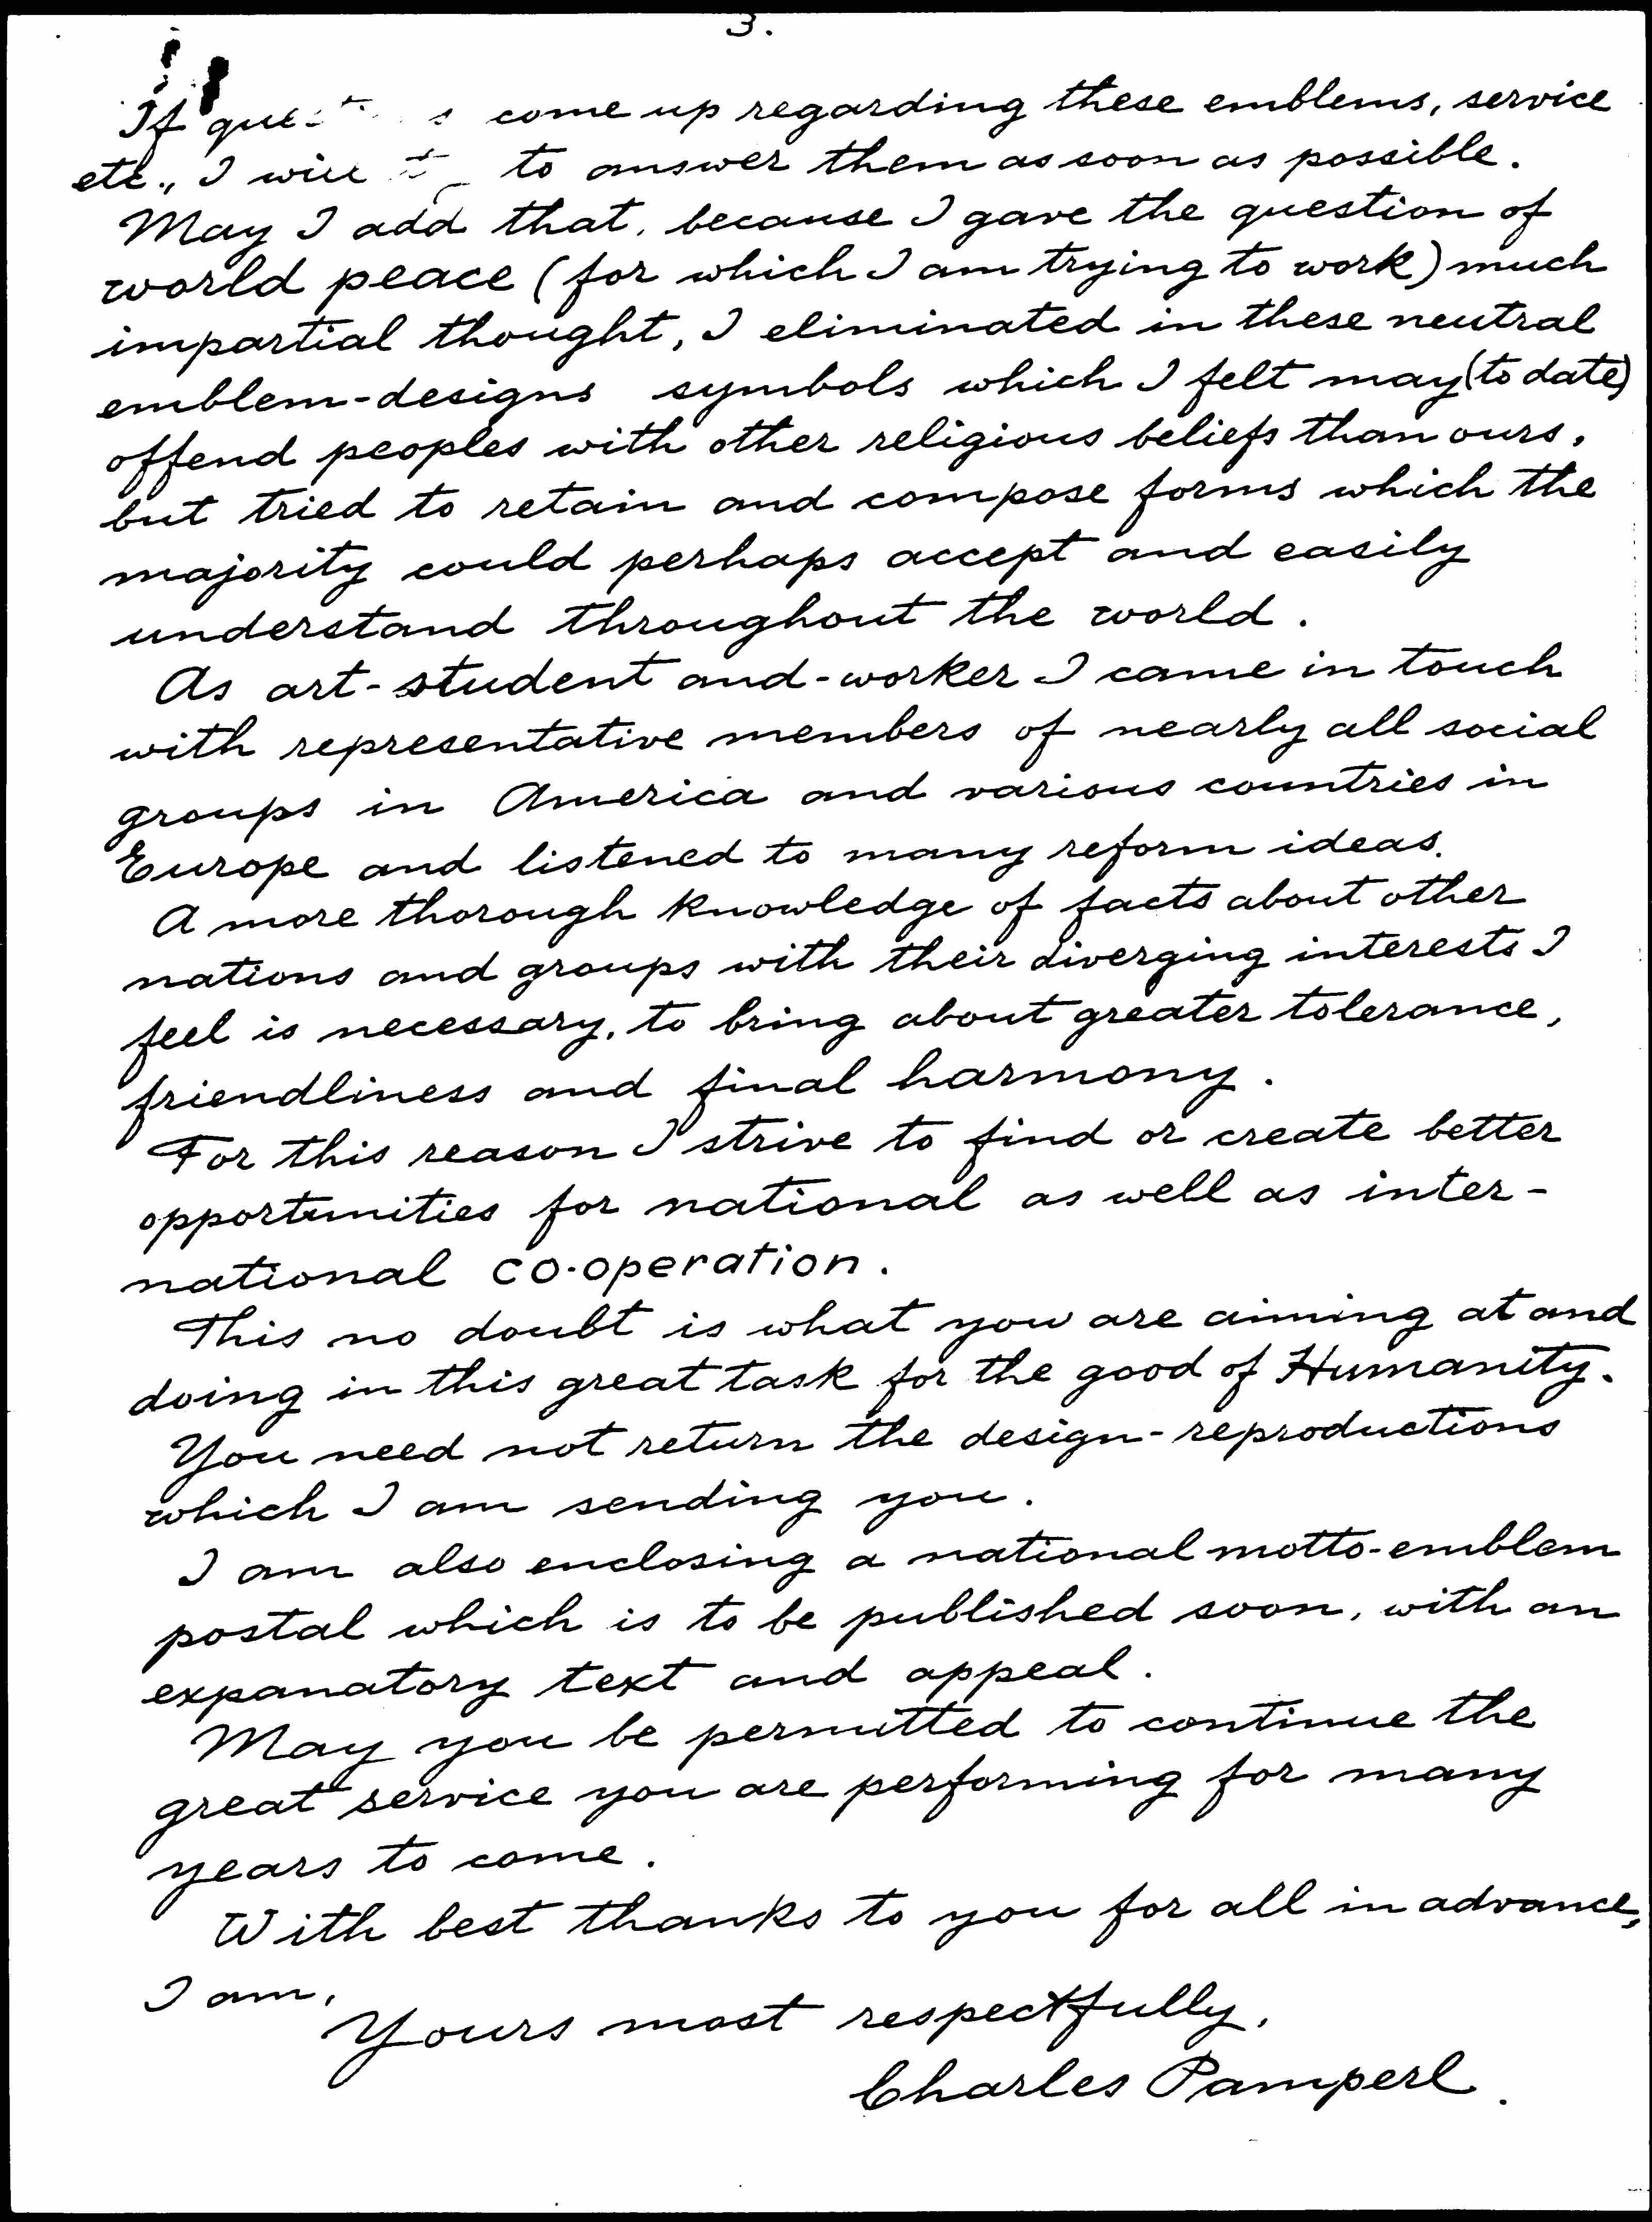 3.
If come up regarding these emblems, service
etc., I will to answer them as soon as possible.
May I add that, because I gave the question of
world peace (for which I am trying to work) much
impartial thought, I eliminated in these neutral
emblem-designs symbols which I felt may (to date)
offend peoples with other religious beliefs than ours,
but tried to retain and compose forms which the
majority could perhaps accept and easily
understand throughout the world.
As art-student and-worker I came in touch
with representative members of nearly all social
groups in America and various countries in
Europe and listened to many reform ideas.
A more thorough knowledge of facts about other
nations and groups with their diverging interests I
feel is necessary, to bring about greater tolerance,
friendliness and final harmony.
For this reason I strive to find or create better
opportunities for national as well as inter-
national co-operation.
This no doubt is what you are aiming at and
doing in this great task for the good of Humanity.
You need not return the design-reproductions
which I am sending you.
I am also enclosing a national motto-emblem
postal which is to be published soon, with an
expanatory text and appeal.
May you be permitted to continue the
great service you are performing for many
years to come.
With best thanks to you for all in advance,
I am,
Yours most respectfully,
Charles Pamperl.